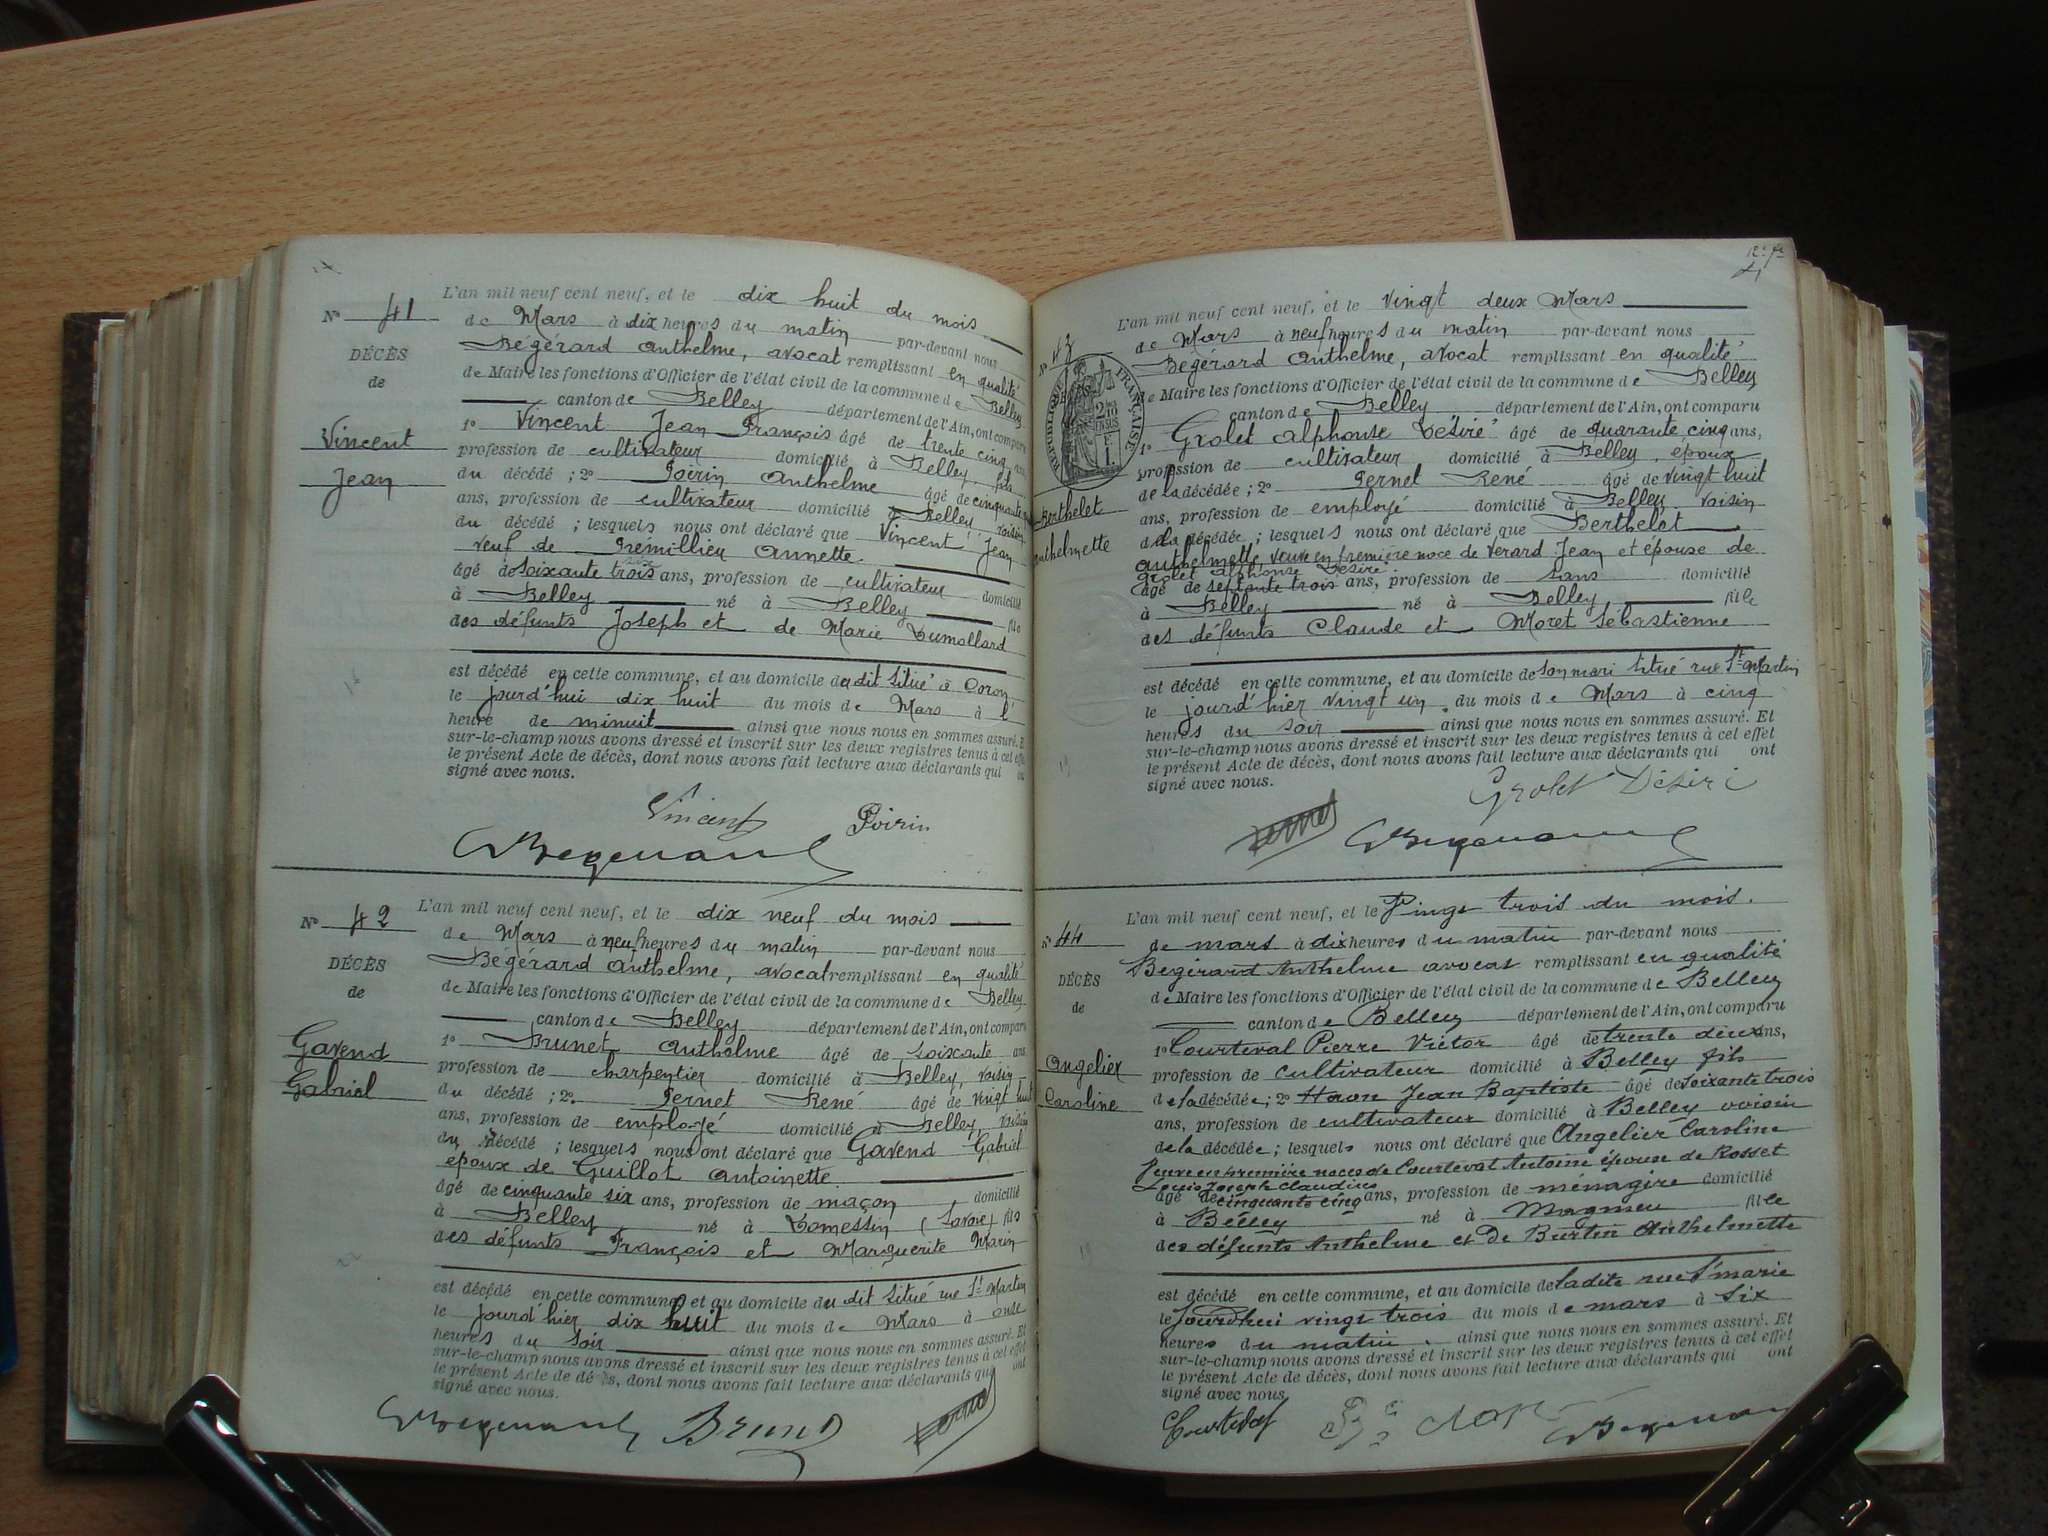 L'an mil neuf cent neuf, et le dix huit du mois
N° 41
de Mars à dix heures du matin par-devant nous
Bégérard Anthelme, avocat remplissant en qualité
DÉCÈS
de Maire les fonctions d'Officier de l'état civil de la commune de Belley
de
canton de Belley département de l'Ain, ont comparu
Vincent
1° Vincent Jean François âgé de trente cinq ans
profession de cultivateur domicilié à Belley, fils
Jean
du décédé ; 2° Poirin Anthelme âgé de cinquante
ans, profession de cultivateur domicilié à Belley voisin
du décédé ; lesquels nous ont déclaré que Vincent Jean
veuf de Prémillieu Annette.
âgé de soixante trois ans, profession de cultivateur domicilié
à Belley né à Belley fils
des défunts Joseph et de Marie Dumollard
est décédé en cette commune, et au domicile du dit situé à Coron
le jourd'hui dix huit du mois de Mars à l'
heure de minuit ainsi que nous nous en sommes assuré. Et
sur-le-champ nous avons dressé et inscrit sur les deux registres tenus à cet effet
le présent Acte de décès, dont nous avons fait lecture aux déclarants qui ont
signé avec nous.
Vincent Poirin
L'an mil neuf cent neuf, et le dix neuf du mois
N° 42
de Mars à neuf heures du matin par-devant nous
Bégérard Anthelme, avocat remplissant en qualité
DÉCÈS
de Maire les fonctions d'Officier de l'état civil de la commune de Belley
de
canton de Belley département de l'Ain, ont comparu
Gavend
1° Brunet Anthelme âgé de soixante ans
profession de charpentier domicilié à Belley, voisin
Gabriel
du décédé ; 2° Pernet René âgé de vingt huit
ans, profession de employé domicilié à Belley, voisin
du décédé ; lesquels nous ont déclaré que Gavend Gabriel
époux de Guillot Antoinette.
âgé de cinquante six ans, profession de maçon domicilié
à Belley né à Domessin (Savoie) fils
des défunts François et Marguerite Marin
est décédé en cette commune, et au domicile du dit situé rue St Martin
le jourd'hier dix huit du mois de Mars à onze
heures du soir ainsi que nous nous en sommes assuré. Et
sur-le-champ nous avons dressé et inscrit sur les deux registres tenus à cet effet
le présent Acte de décès, dont nous avons fait lecture aux déclarants qui ont
signé avec nous.
L'an mil neuf cent neuf, et le vingt deux Mars
N° 43
de Mars à neuf heures du matin par-devant nous
Bégérard Anthelme, avocat remplissant en qualité
de Maire les fonctions d'Officier de l'état civil de la commune de Belley
RÉPUBLIQUE FRANÇAISE
canton de Belley département de l'Ain, ont comparu
1° Grolet Alphonse Désiré âgé de quarante cinq ans,
profession de cultivateur domicilié à Belley, époux
de la décédée ; 2° Pernet René âgé de vingt huit
Berthelet
ans, profession de employé domicilié à Belley voisin
Anthelmette
de la décédée ; lesquels nous ont déclaré que Berthelet
Anthelmette, veuve en première noce de Verard Jean et épouse de
Grolet Alphonse Désiré.
âgé de septante trois ans, profession de sans domicilié
à Belley né à Belley fille
des défunts Claude et Moret Sébastienne
est décédé en cette commune, et au domicile de son mari situé rue St Martin
le jourd'hier vingt un du mois de Mars à cinq
heures du soir ainsi que nous nous en sommes assuré. Et
sur-le-champ nous avons dressé et inscrit sur les deux registres tenus à cet effet
le présent Acte de décès, dont nous avons fait lecture aux déclarants qui ont
signé avec nous.
Grolet Désiré
L'an mil neuf cent neuf, et le Vingt trois du mois.
N° 44
de mars à dix heures du matin par-devant nous
Bégérard Anthelme avocat remplissant en qualité
DÉCÈS
de Maire les fonctions d'Officier de l'état civil de la commune de Belley
de
canton de Belley département de l'Ain, ont comparu
Angelier
1° Courteval Pierre Victor âgé de trente deux ans,
profession de cultivateur domicilié à Belley fils
Caroline
de la décédée ; 2° Jean Baptiste âgé de soixante trois
ans, profession de cultivateur domicilié à Belley voisin
de la décédée ; lesquels nous ont déclaré que Angelier Caroline
Veuve en première noces de Courteval Antoine épouse de Rosset
Louis Joseph Claudius
âgé de cinquante cinq ans, profession de ménagère domicilié
à Belley né à Magnieu fille
des défunts Anthelme et de Burtin Anthelmette
est décédé en cette commune, et au domicile de ladite rue Ste marie
le Jourdhui vingt trois du mois de mars à six
heures du matin. ainsi que nous nous en sommes assuré. Et
sur-le-champ nous avons dressé et inscrit sur les deux registres tenus à cet effet
le présent Acte de décès, dont nous avons fait lecture aux déclarants qui ont
signé avec nous